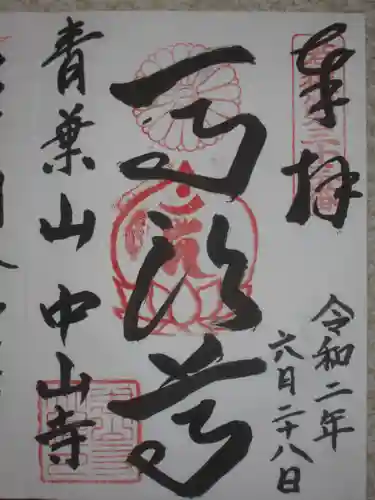 奉拝
令和二年
六月二十八日
馬頭尊
青葉山中山寺